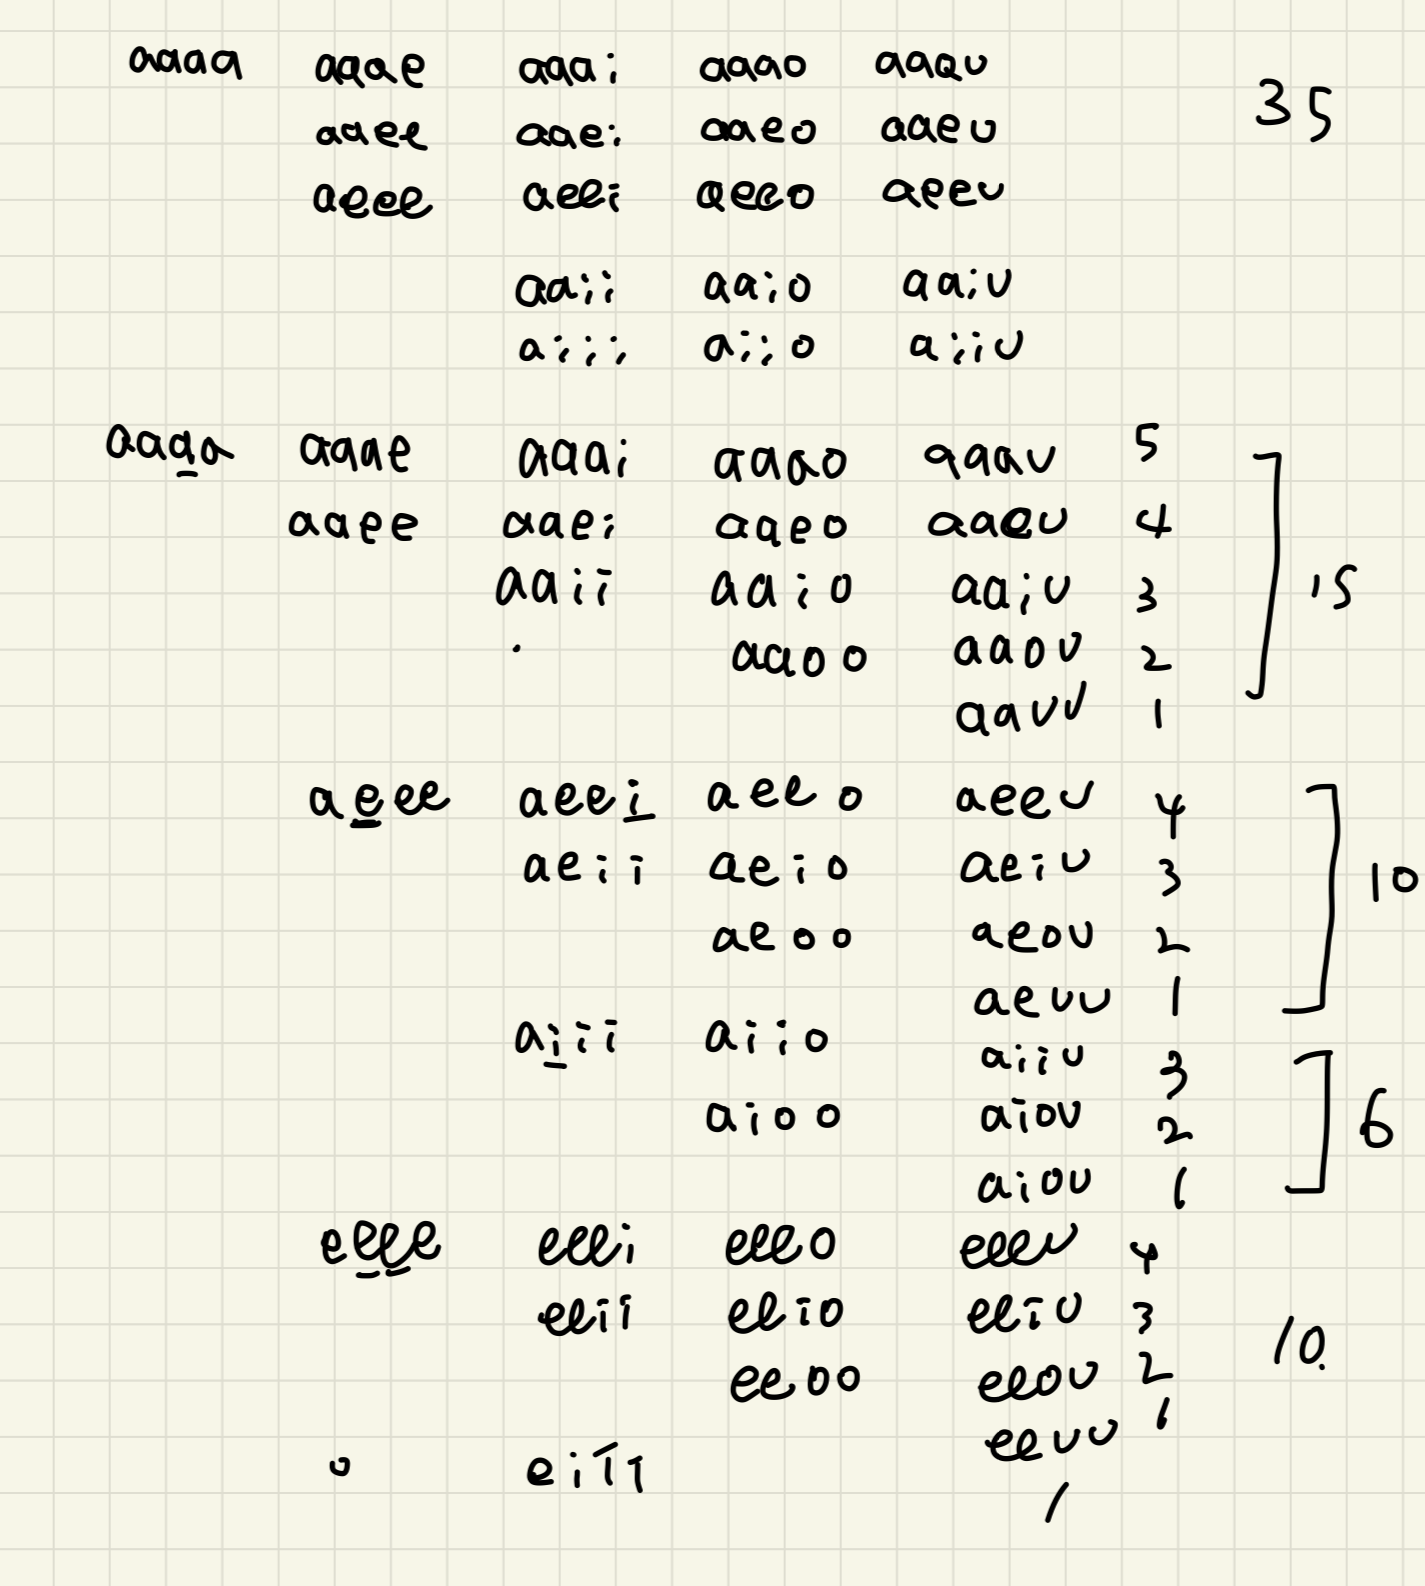 aaaa aaae aaai aaao aaau
35
aaee aaei aaeo aaeu
aeee aeei aeeo aeeu
aaii aaio aaiu
aiii aiio aiiu
aaaa aaae aaai aaao aaau 5
aaee aaei aaeo aaeu 4
aaii aaio aaiu 3
15
aaoo aaou 2
aauu 1
aeee aeei aeeo aeeu 4
aeii aeio aeiu 3
10
aeoo aeou 2
aeuu 1
aiii aiio aiiu 3
aioo aiou 2
6
aiou 1
eeee eeei eeeo eeeu 4
eeii eeio eeiu 3
10.
eeoo eeou 2
eeuu 1
eiii